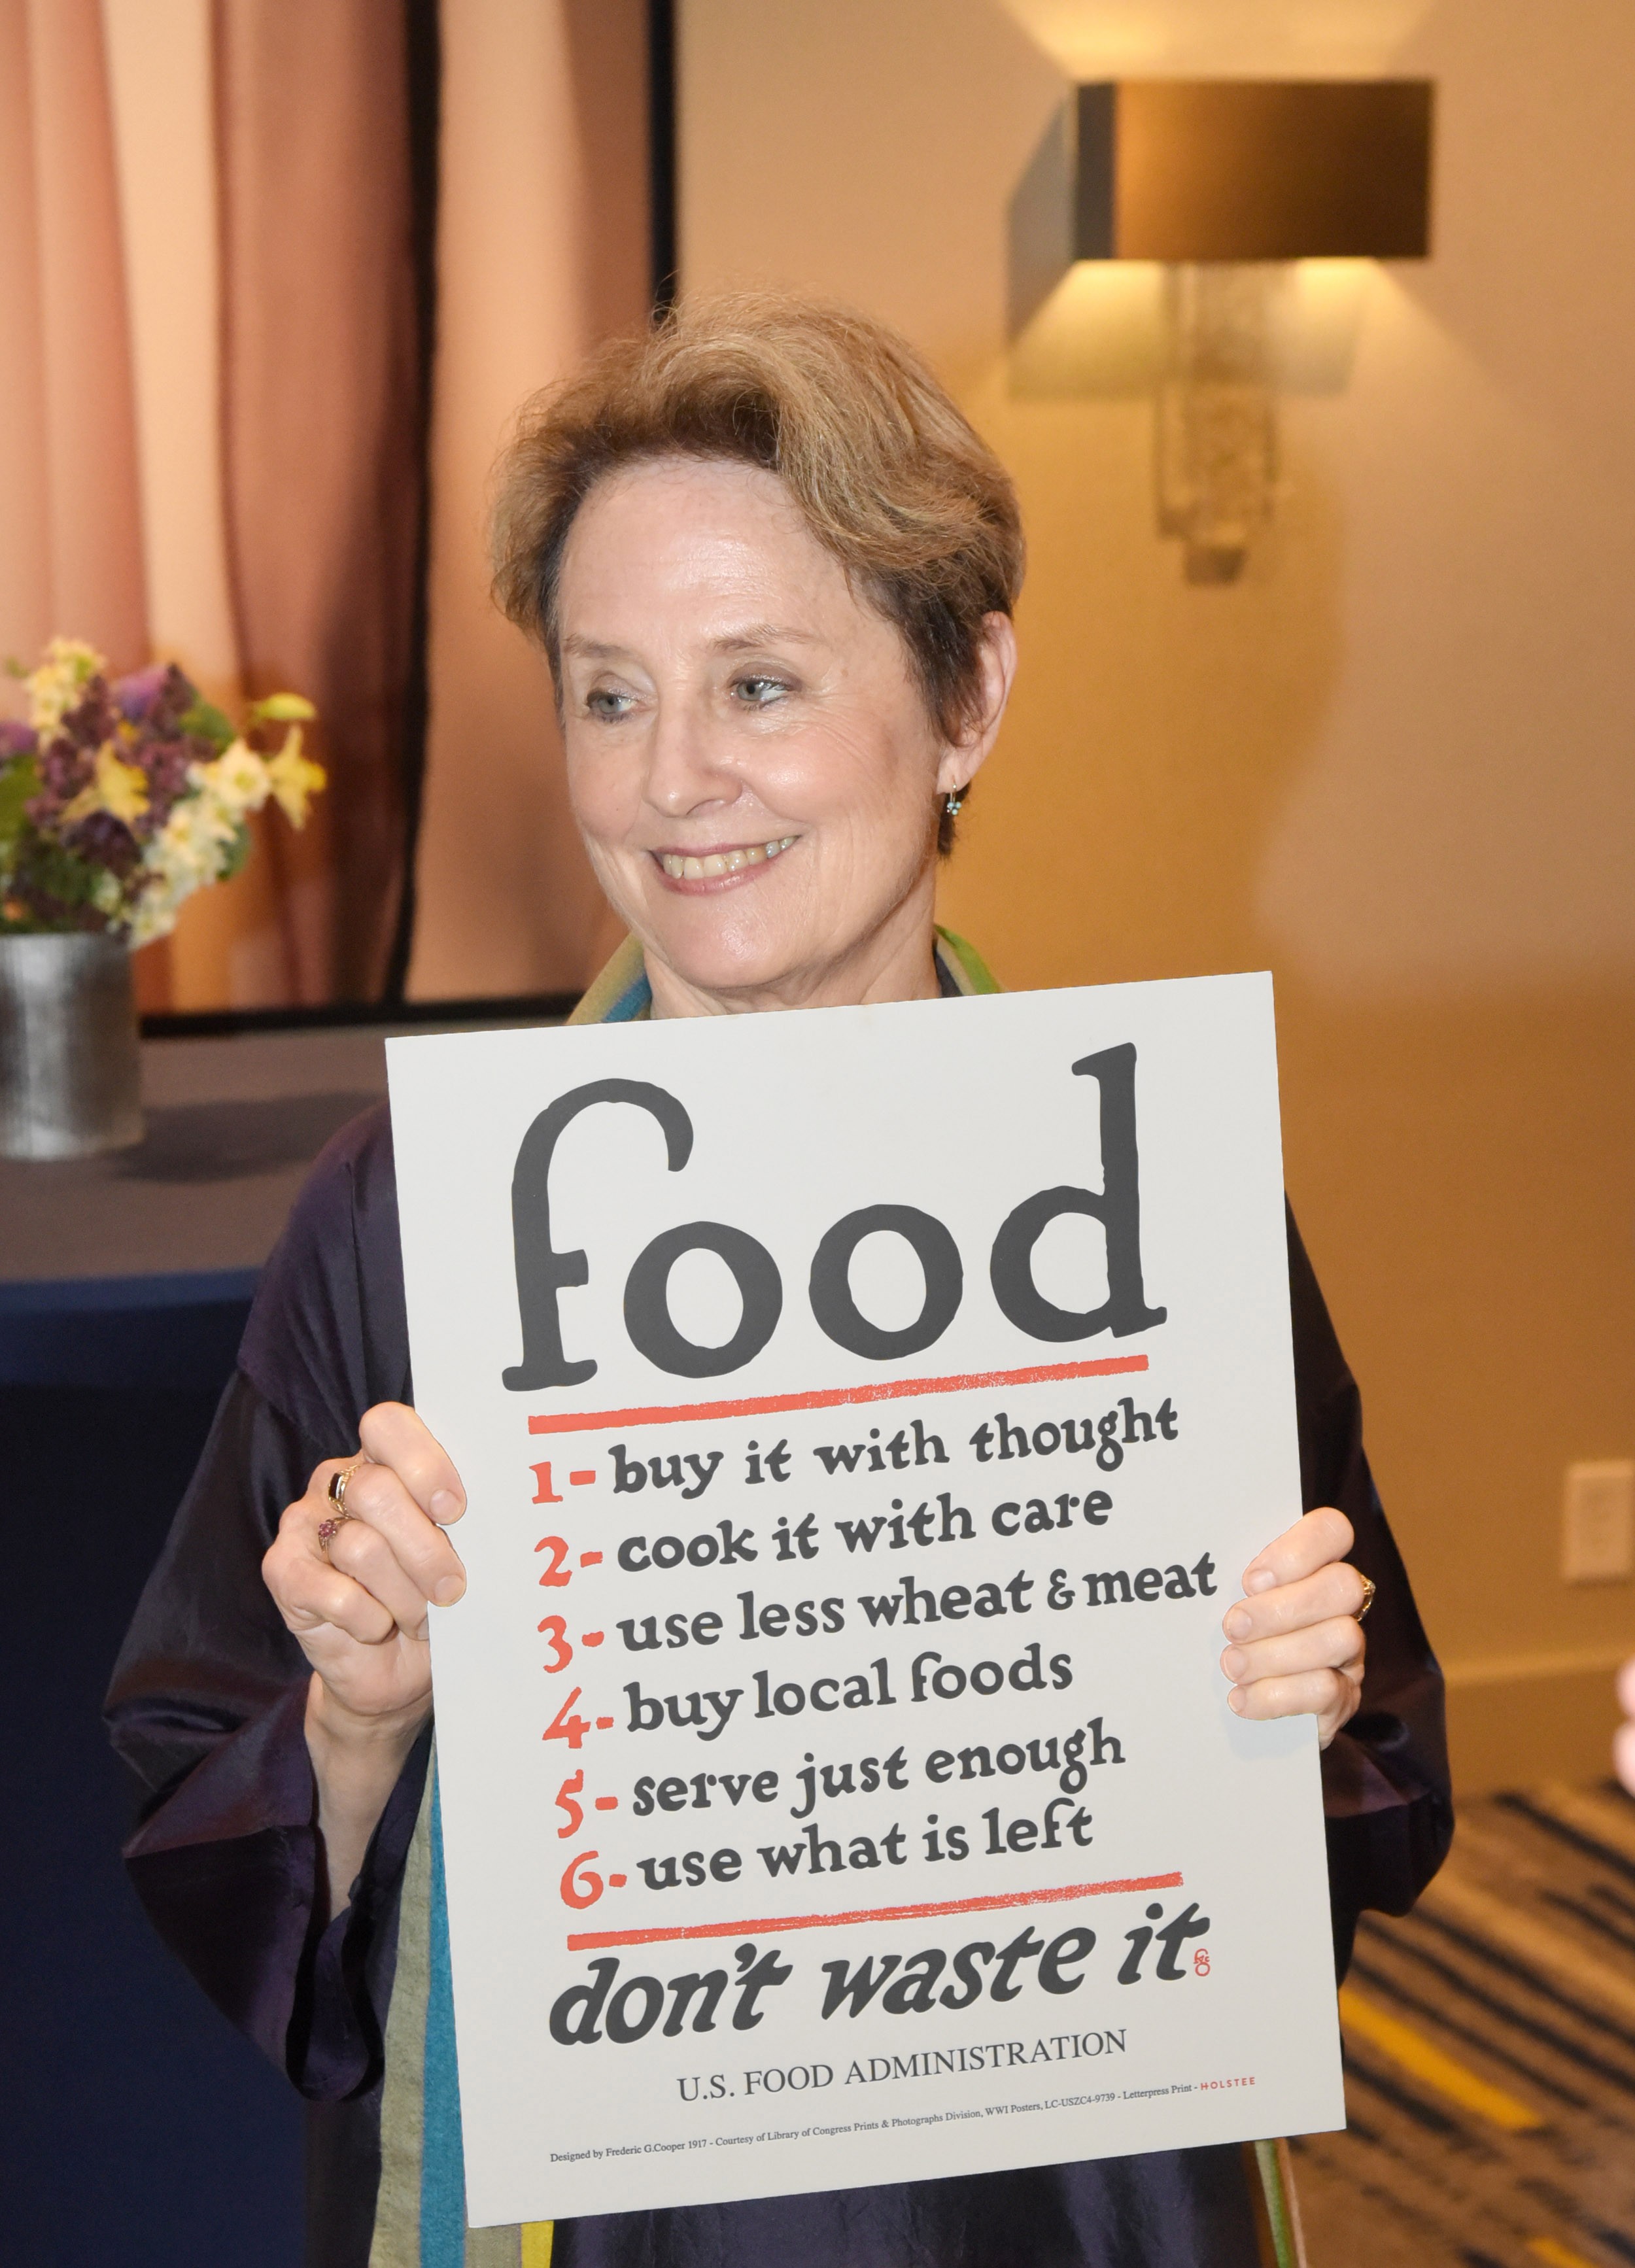 food
1- buy it with thought
2- cook it with care
3- use less wheat & meat
4- buy local foods
5- serve just enough
6- use what is left
don't waste it
U.S. FOOD ADMINISTRATION
Designed by Frederic G.Cooper 1917 - Courtesy of Library of Congress Prints & Photographs Division, WWI Posters, LC-USZC4-9739 - Letterpress Print - HOLSTEE